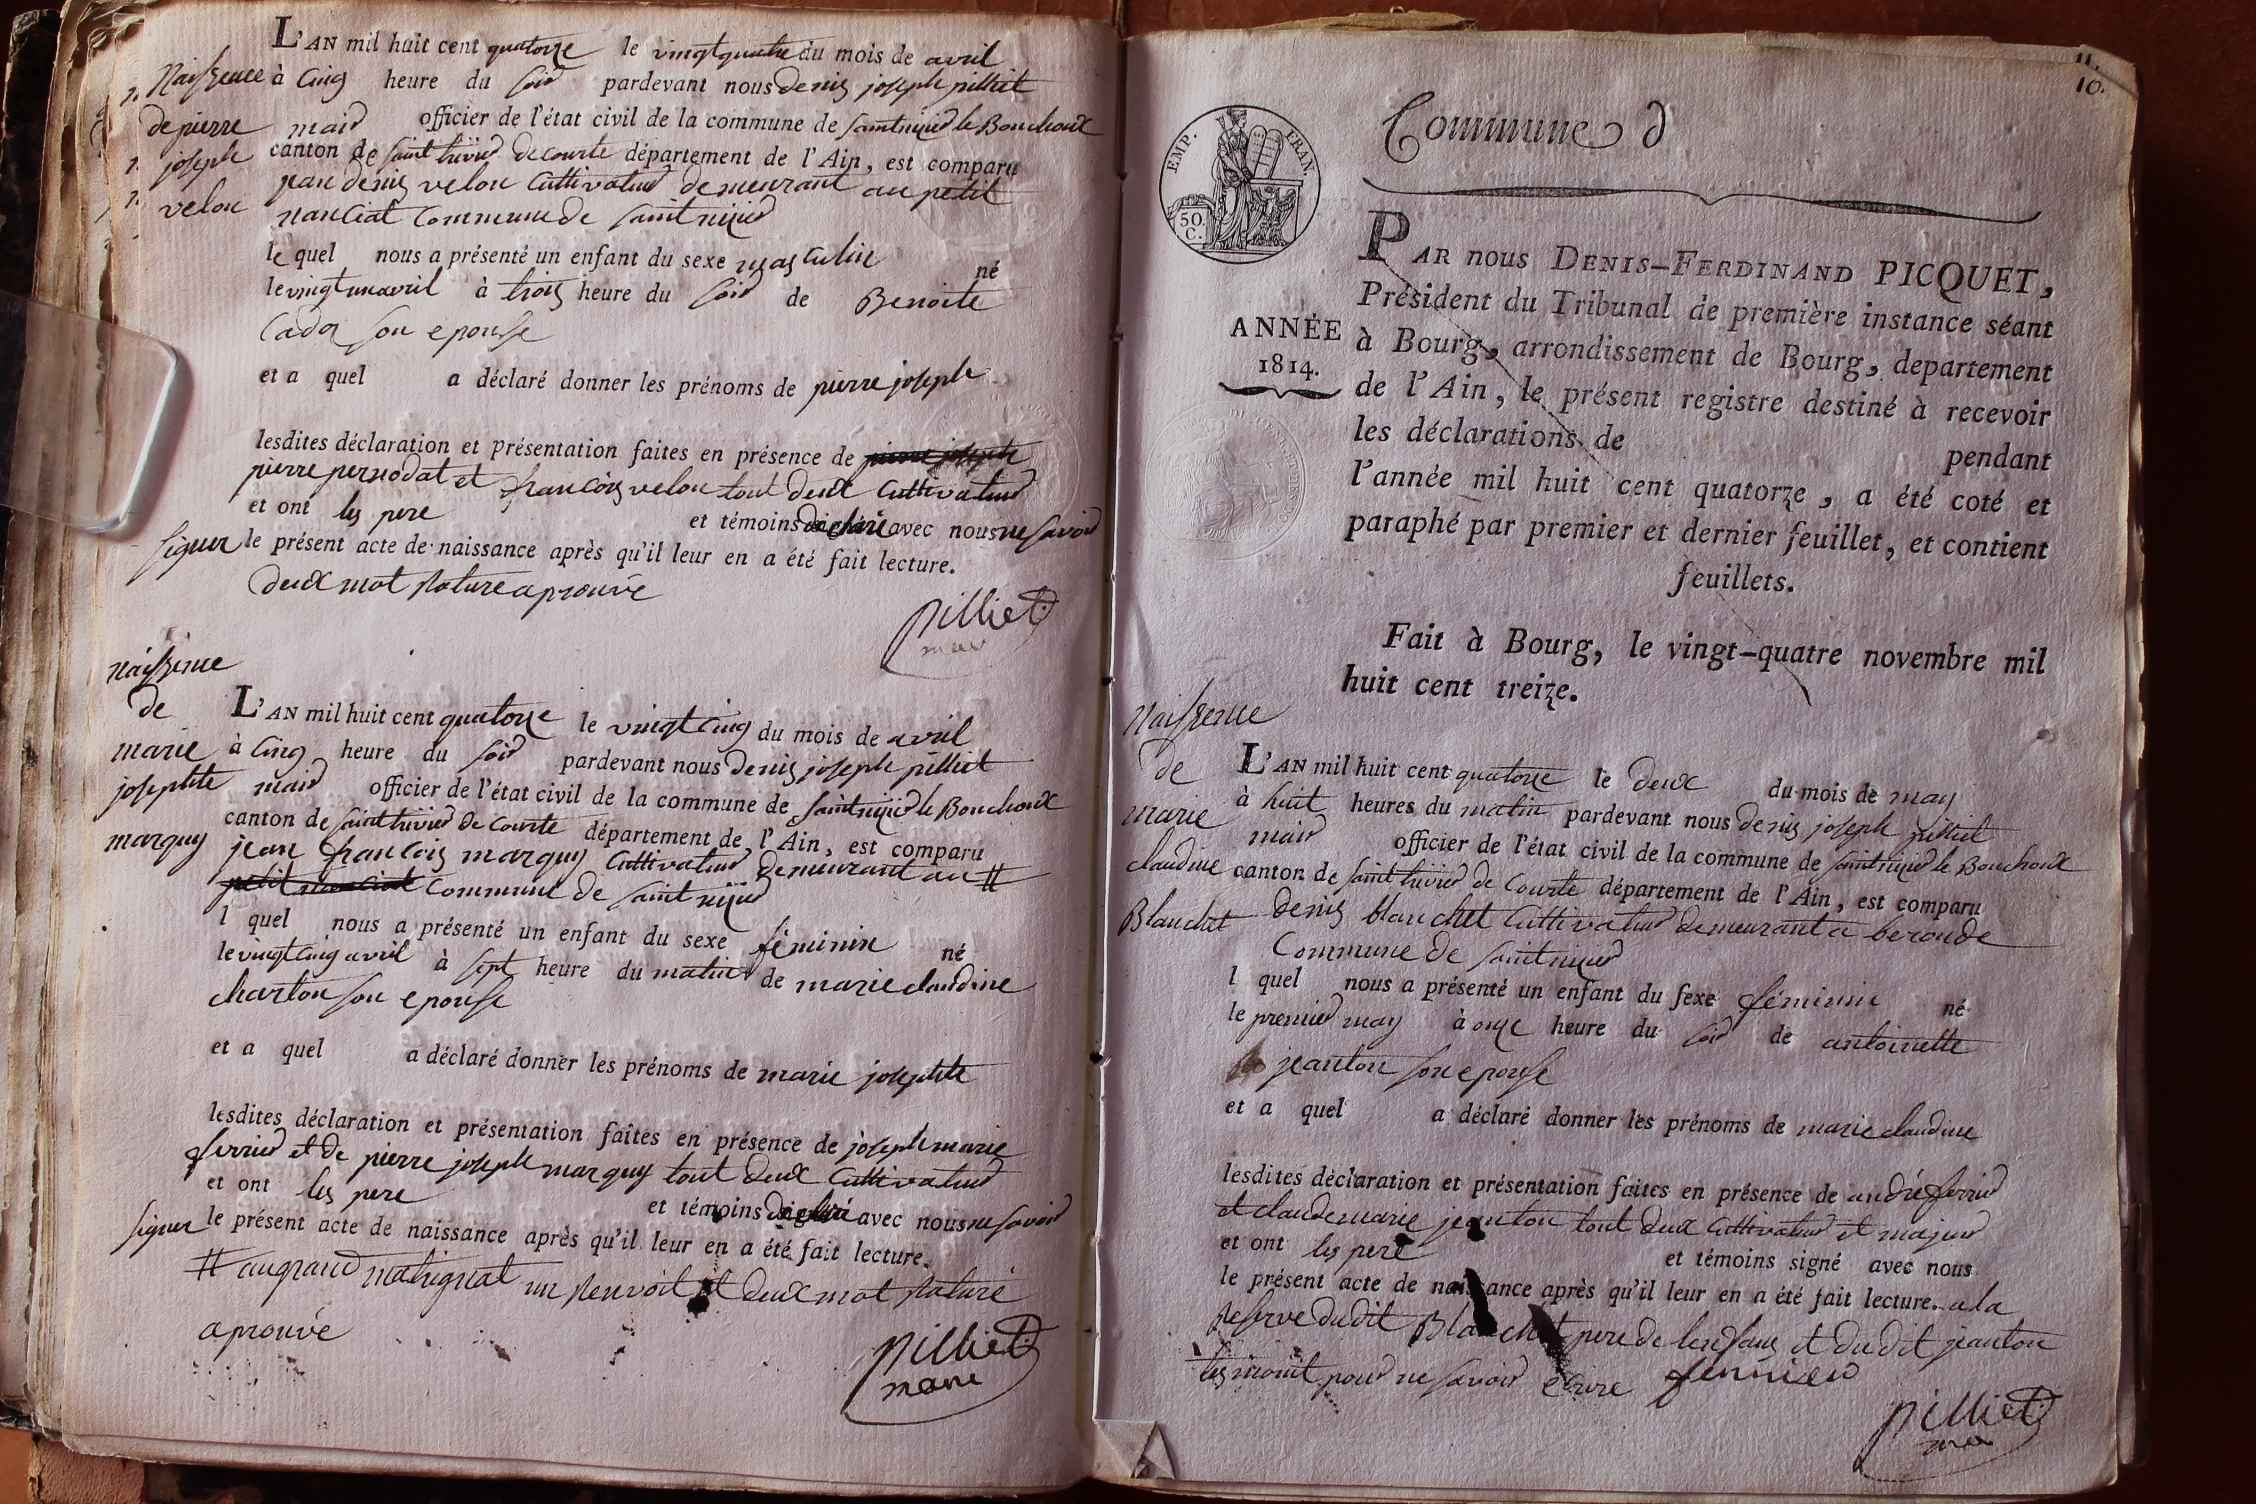 L'AN mil huit cent quatorze le vingt quatre du mois de avril
à cinq heure du soir pardevant nous denis joseph pilliet
maire officier de l'état civil de la commune de saint nizier le Bouchoux
canton de saint trivier de courte département de l'Ain, est comparu
jean denis velon cultivateur demeurant au petit
nanciat commune de saint nizier
le quel nous a présenté un enfant du sexe masculin né
le vingt un avril à trois heure du soir de Benoite
Cador son epouse
et a quel a déclaré donner les prénoms de pierre joseph
lesdites déclaration et présentation faites en présence de pierre joseph
pierre pernodat et francois velon tout deux cultivateur
et ont les pere et témoins declaré avec nous ne savoir
signer le présent acte de naissance après qu'il leur en a été fait lecture.
deux mot rature aprouvé
pilliet
maire
Naissence
de pierre
joseph
velon
naissence
de
marie
josephte
marquy
L'AN mil huit cent quatorze le vingt cinq du mois de avril
à cinq heure du soir pardevant nous denis joseph pilliet
maire officier de l'état civil de la commune de saint nizier le Bouchoux
canton de saint trivier de courte département de l'Ain, est comparu
jean francois marquy cultivateur demeurant au #
petit nanciat commune de saint nizier
l quel nous a présenté un enfant du sexe féminin né
le vingt cinq avril à sept heure du matin de marie claudine
charton son epouse
et a quel a déclaré donner les prénoms de marie josephte
lesdites déclaration et présentation faites en présence de joseph marie
ferrier et de pierre joseph marquy tout deux cultivateur
et ont les pere et témoins declaré avec nous ne savoir
signer le présent acte de naissance après qu'il leur en a été fait lecture.
# au grand matignat un renvoit et deux mot raturé
aprouvé
pilliet
maire
11.
10.
Commune d
EMP. FRAN.
50
C.
ANNÉE
1814.
PAR nous DENIS-FERDINAND PICQUET,
Président du Tribunal de première instance séant
à Bourg, arrondissement de Bourg, departement
de l'Ain, le présent registre destiné à recevoir
les déclarations de pendant
l'année mil huit cent quatorze, a été coté et
paraphé par premier et dernier feuillet, et contient
feuillets.
Fait à Bourg, le vingt-quatre novembre mil
huit cent treize.
Naissence
de
marie
claudine
Blanchet
L'AN mil huit cent quatorze le deux du mois de may
à huit heures du matin pardevant nous denis joseph pilliet
maire officier de l'état civil de la commune de saint nizier le Bouchoux
canton de saint trivier de courte département de l'Ain, est comparu
denis blanchet cultivateur demeurant a beronde
commune de saint nizier
l quel nous a présenté un enfant du sexe féminin né
le premier may à onze heure du soir de antoinette
jeanton son epouse
et a quel a déclaré donner les prénoms de marie claudine
lesdites déclaration et présentation faites en présence de andré ferrier
et claude marie jeanton tout deux cultivateur et majeur
et ont les pere et témoins signé avec nous
le présent acte de naissance après qu'il leur en a été fait lecture. a la
reserve dudit Blanchet pere de lenfant et dudit jeanton
témoint pour ne savoir ecrire ferrier
pilliet